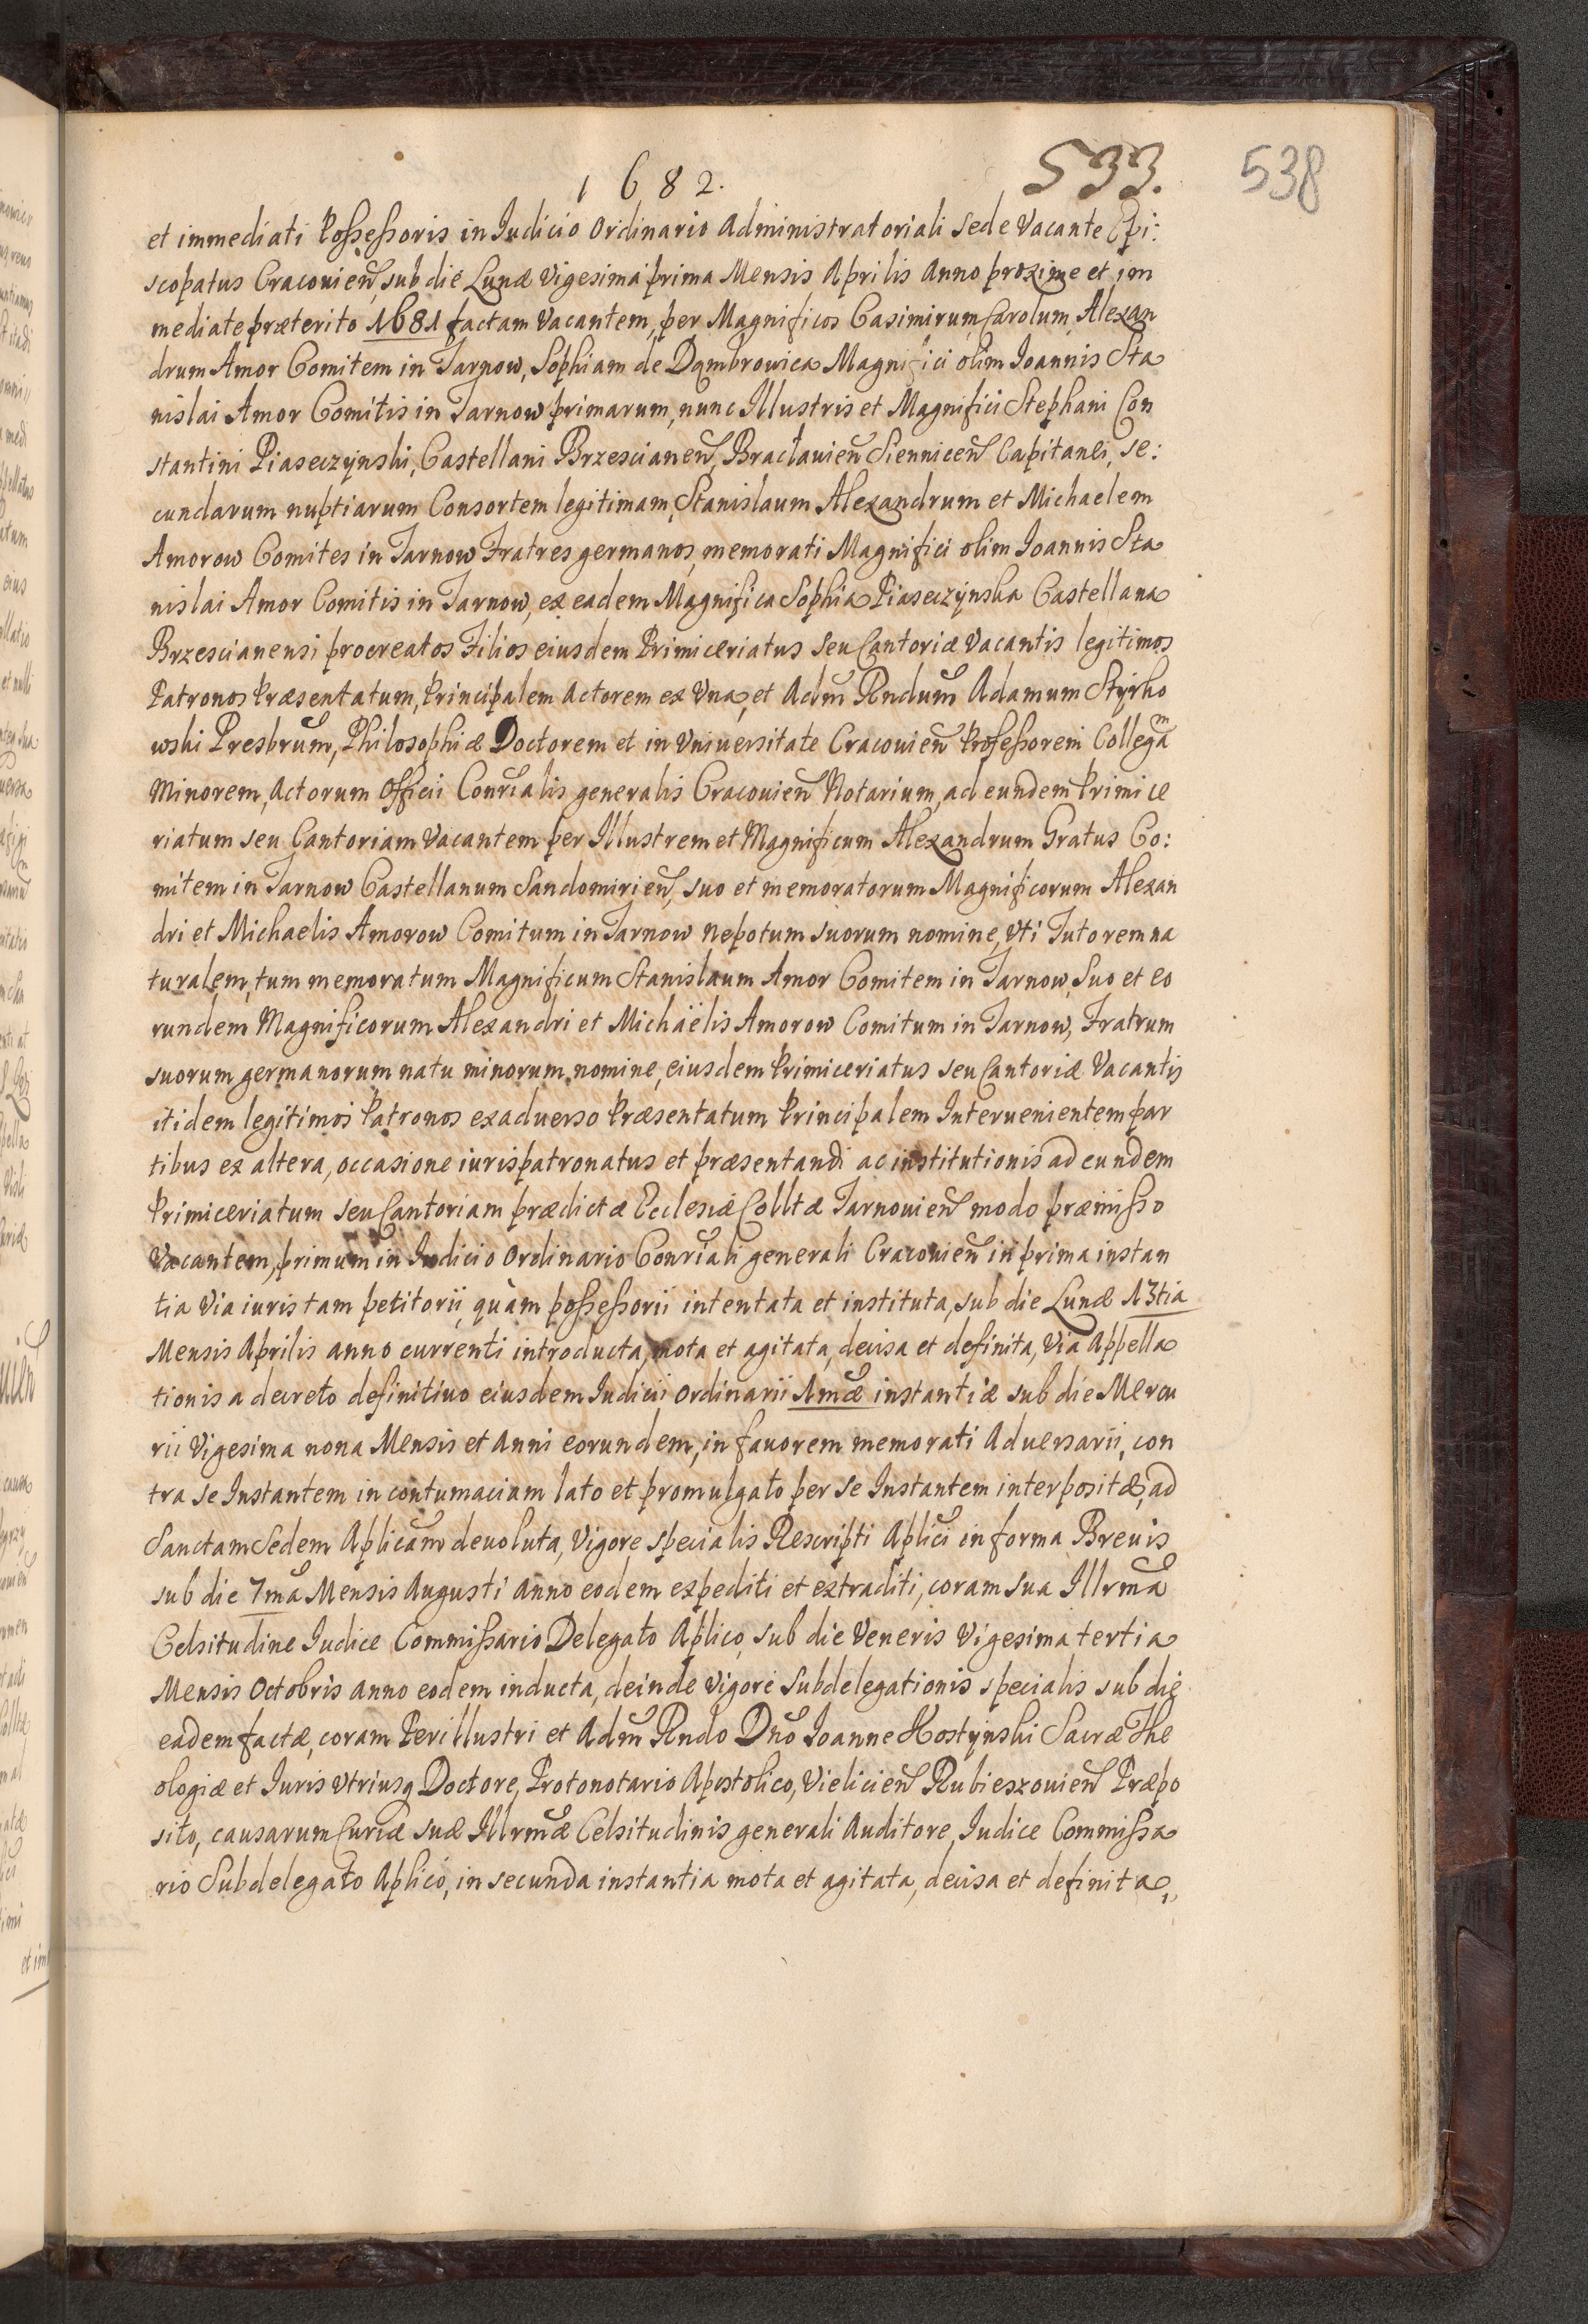 1682.
533.
538
et immediati Possessoris in Iudicio Ordinario Administratoriali Sede Vacante Epi:
scopatus Cracouień, sub die Lunæ Vigesima prima Mensis Aprilis Anno proxime et im
mediate præterito 1681 factam Vacantem, per Magnificos Casimirum, Carolum, Alexan
drum Amor Comitem in Tarnow, Sophiam de Dąmbrowica Magnifici olim Ioannis Sta
nislai Amor Comitis in Tarnow primarum, nunc Illustris et Magnifici Stephani Con
stantini Piaseczÿnski, Castellani Brzescianeñ, Bracłauień Sienniceñ Capitanei, se:
cundarum nuptiarum Consortem legitimam, Stanislaum Alexandrum et Michaelem
Amorow Comites in Tarnow Fratres germanos, memorati Magnifici olim Ioannis Sta
nislai Amor Comitis in Tarnow, ex eadem Magnifica Sophia Piaseczÿnska Castellana
Brzescianensi procreatos Filios eiusdem Primiceriatus seu Cantoriæ Vacantis legitimos
Patronos Præsentatum, Principalem Actorem ex Vna, et Adm̃ Rndum̃ Adamum Stÿrko
wski Presbrũm, Philosophiæ Doctorem et in Vniuersitate Cracouień Professorem Collegam
Minorem, Actorum Officii Conrãlis generalis Cracouień Notarium, ad eundem Primice
riatum seu Cantoriam Vacantem per Illustrem et Magnificum Alexandrum Gratus Co:
mitem in Tarnow Castellanum Sandomirień, suo et memoratorum Magnificorum Alexan
dri et Michaelis Amorow Comitum in Tarnow Nepotum suorum nomine, vti Tutorem na
turalem, tum memoratum Magnificum Stanislaum Amor Comitem in Tarnow, Suo et eo
rundem Magnificorum Alexandri et Michäelis Amorow Comitum in Tarnow, Fratrum
suorum germanorum natu minorum nomine, eiusdem Primiceriatus seu Cantoriæ Vacantis
itidem legitimos Patronos ex aduerso Præsentatum Principalem Interuenientem par
tibus ex altera, occasione iurispatronatus et præsentandi ac institutionis ad eundem
Primiceriatum seu Cantoriam prædictæ Ecclesiæ Colltæ Tarnouień modo præmisso
Vacantem, primum in Iudicio Ordinario Conrãli generali Cracouień in prima instan
tia Via iuris tam petitorii, quàm possessorii intentata et instituta, sub die Lunæ 13tia
Mensis Aprilis anno currenti introducta, mota et agitata, decisa et definita, Via Appella
tionis a decreto definitiuo eiusdem Iudicii Ordinarii 1mæ instantiæ sub die Mercu
rii Vigesima nona Mensis et Anni eorundem, in fauorem memorati Aduersarii, con
tra se Instantem in contumaciam lato et promulgato per se Instantem interpositæ, ad
Sanctam Sedem Aplicãm deuoluta, Vigore specialis Rescripti Aplici in forma Breuis
sub die 7mã Mensis Augusti Anno eodem expediti et extraditi, coram sua Illrmã
Celsitudine Iudice Commissario Delegato Aplico, sub die Veneris Vigesima tertia
Mensis Octobris anno eodem inducta, deinde Vigore Subdelegationis specialis sub die
eadem factæ, coram Perillustri et Adm̃ Rndo Dnõ Ioanne Hostÿnski Sacræ The
ologiæ et Iuris vtriusq Doctore, Protonotario Apostolico, Vielicień Rubieszouień Præpo
sito, causarum Curiæ suæ Illrmæ Celsitudinis generali Auditore, Iudice Commissa
rio Subdelegato Aplico, in secunda instantia mota et agitata, decisa et definita,